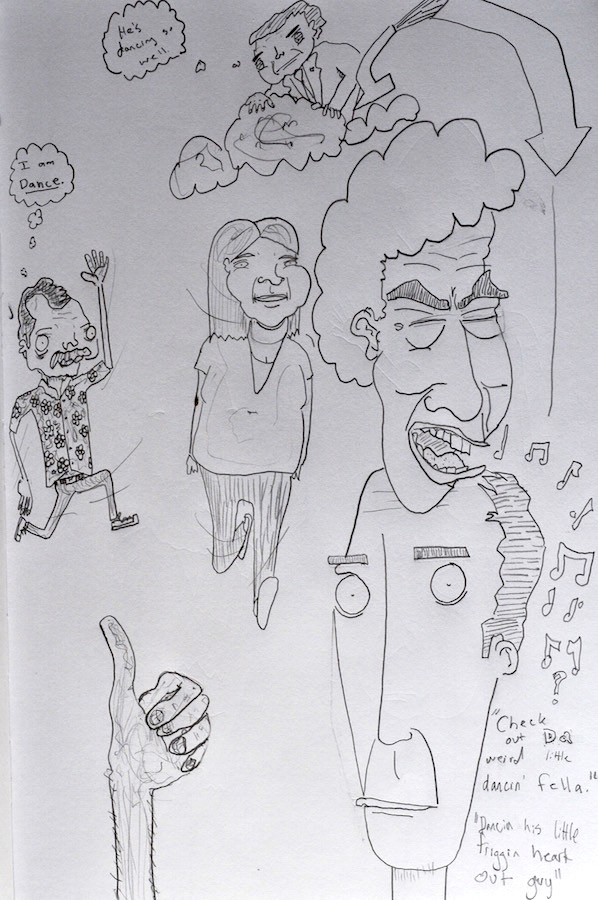 He's
dancing so
well.
I am
Dance.
"Check
out Da
weird little
dancin' fella."
"Dancin his little
friggin heart
out guy"